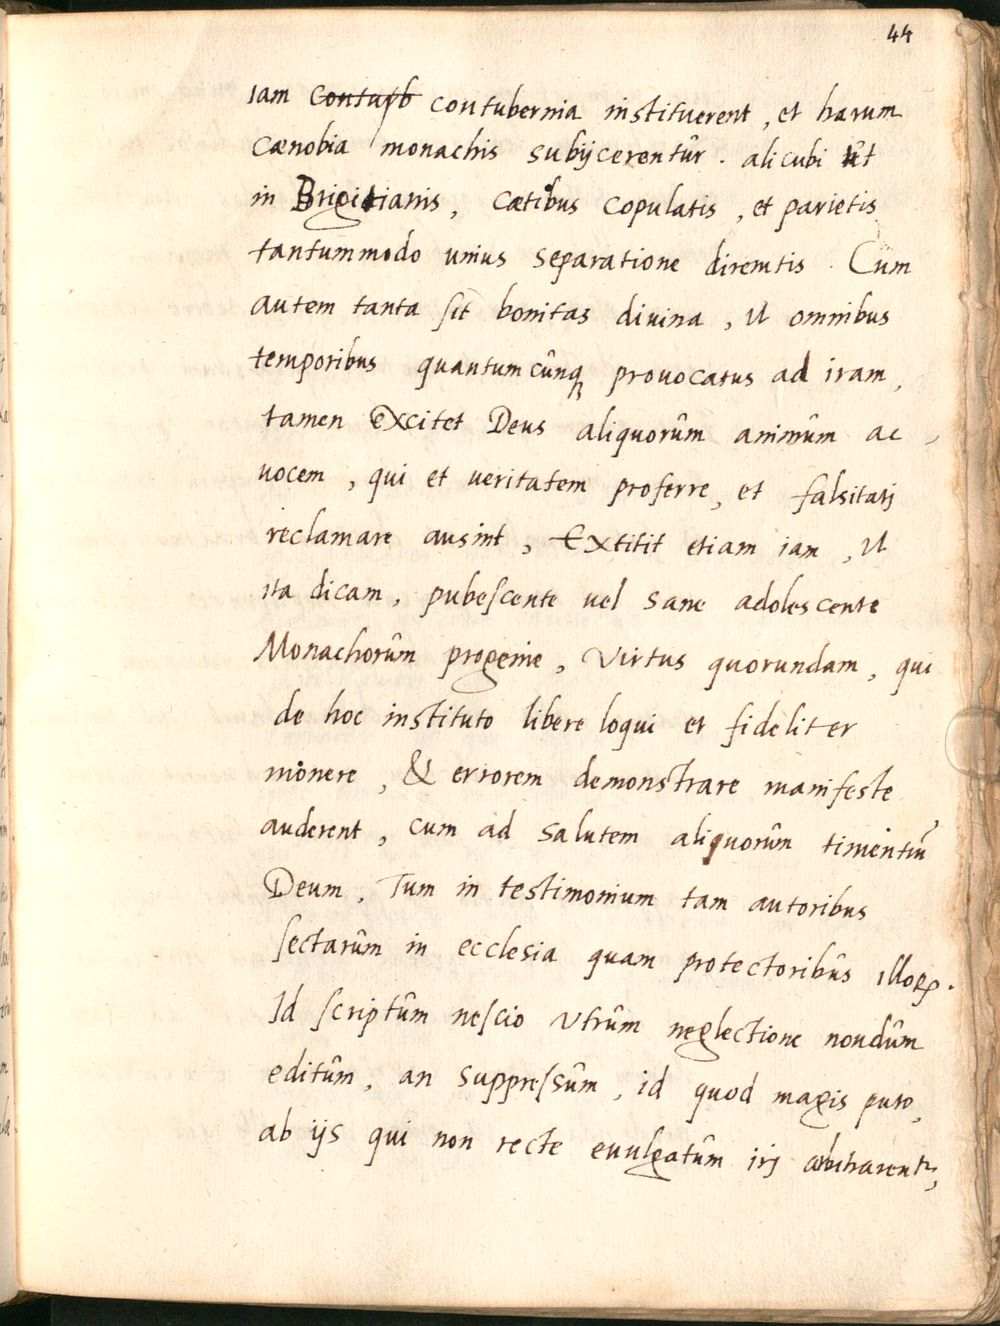 44
iam Conturb contubernia instituerent, et harum
cænobia monachis subijcerentûr. alicubi ût
in Brigittianis, cætibus copulatis, et parietis
tantummodo unius separatione diremtis. Cum
autem tanta sit bonitas divina, ut omnibus
temporibus quantumcûnq provocatus ad iram,
tamen excitet Deus aliquorûm animûm ac
vocem, qui et veritatem proferre, et falsitatj
reclamare ausint, Extitit etiam iam, ut
ita dicam, pubescente vel sane adolescente
Monachorûm progenie, Virtus quorundam, qui
de hoc instituto libere loqui et fideliter
monere, & errorem demonstrare manifeste
auderent, cum ad salutem aliquorûm timentiū
Deum, Tum in testimonium tam autoribus
sectarûm in ecclesia quam protectoribûs illoꝝ.
Id scriptûm nescio utrûm neglectione nondûm
editûm, an suppressûm, id quod magis puto,
ab ijs qui non recte evulgatûm irj arbitrarentr,